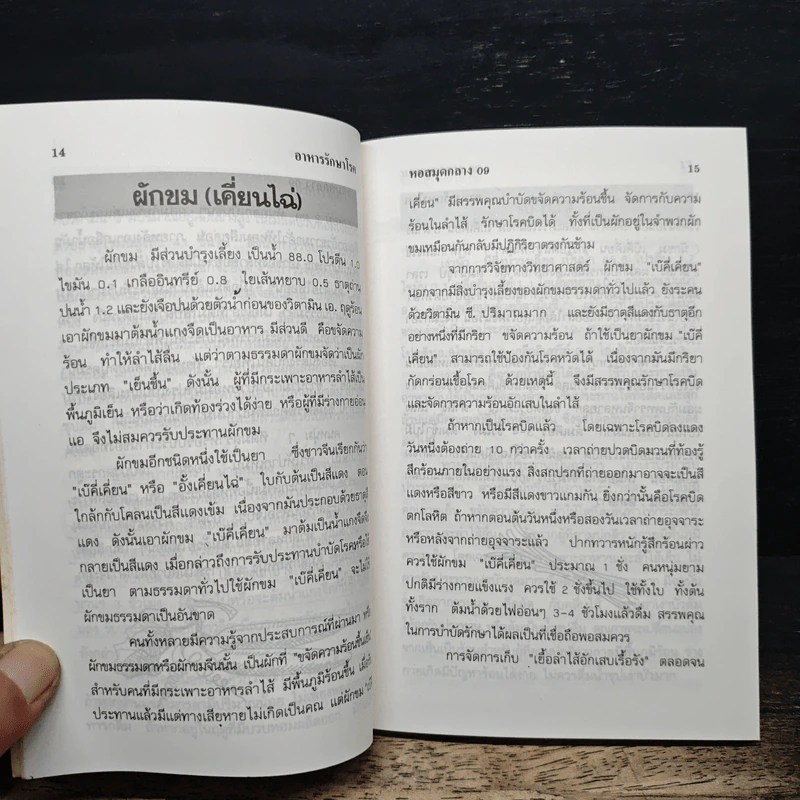 14
อาหารรักษาโรค
ผักขม (เคี่ยนไฉ่)
ผักขม มีส่วนบำรุงเลี้ยง เป็นน้ำ 88.0 โปรตีน 1.0
ไขมัน 0.1 เกลืออินทรีย์ 0.8 ใยเส้นหยาบ 0.5 ธาตุถ่าน
ปนน้ำ 1.2 และยังเจือปนด้วยตัวนำก่อนของวิตามิน เอ. ฤดูร้อน
เอาผักขมมาต้มน้ำแกงจืดเป็นอาหาร มีส่วนดี คือขจัดความ
ร้อน ทำให้ลำไส้ลื่น แต่ว่าตามธรรมดาผักขมจัดว่าเป็นผัก
ประเภท "เย็นชื้น" ดังนั้น ผู้ที่มีกระเพาะอาหารลำไส้เป็น
พื้นภูมิเย็น หรือว่าเกิดท้องร่วงได้ง่าย หรือผู้ที่มีร่างกายอ่อน
แอ จึงไม่สมควรรับประทานผักขม
ผักขมอีกชนิดหนึ่งใช้เป็นยา ซึ่งชาวจีนเรียกกันว่า
"เบ๊คี่เคี่ยน" หรือ "อั้งเคี่ยนไฉ่" ใบกับต้นเป็นสีแดง ตอน
ใกล้กับโคลนเป็นสีแดงเข้ม เนื่องจากมันประกอบด้วยธาตุสี
แดง ดังนั้นเอาผักขม "เบ๊คี่เคี่ยน" มาต้มเป็นน้ำแกงจืดจึง
กลายเป็นสีแดง เมื่อกล่าวถึงการรับประทานบำบัดโรคหรือใช้
เป็นยา ตามธรรมดาทั่วไปใช้ผักขม "เบ๊คี่เคี่ยน" จะไม่ใช้
ผักขมธรรมดาเป็นอันขาด
คนทั้งหลายมีความรู้จากประสบการณ์ที่ผ่านมา
ผักขมธรรมดาหรือผักขมจีนนั้น เป็นผักที่ "ขจัดความร้อนชื้น
สำหรับคนที่มีกระเพาะอาหารลำไส้ มีพื้นภูมิร้อนชื้น
ประทานแล้วมีแต่ทางเสียหายไม่เกิดเป็นคุณ แต่ผักขม
หอสมุดกลาง 09
15
เคี่ยน" มีสรรพคุณบำบัดขจัดความร้อนชื้น จัดการกับความ
ร้อนในลำไส้ รักษาโรคบิดได้ ทั้งที่เป็นผักอยู่ในจำพวกผัก
ขมเหมือนกันกลับมีปฏิกิริยาตรงกันข้าม
จากการวิจัยทางวิทยาศาสตร์ ผักขม "เบ๊คี่เคี่ยน"
นอกจากมีสิ่งบำรุงเลี้ยงของผักขมธรรมดาทั่วไปแล้ว ยังระคน
ด้วยวิตามิน ซี. ปริมาณมาก และยังมีธาตุสีแดงกับธาตุอีก
อย่างหนึ่งที่มีกริยา ขจัดความร้อน ถ้าใช้เป็นยาผักขม "เบ๊คี่
เคี่ยน" สามารถใช้ป้องกันโรคหวัดได้ เนื่องจากมันมีกริยา
กัดกร่อนเชื้อโรค ด้วยเหตุนี้ จึงมีสรรพคุณรักษาโรคบิด
และจัดการความร้อนอักเสบในลำไส้
ถ้าหากเป็นโรคบิดแล้ว โดยเฉพาะโรคบิดลงแดง
วันหนึ่งต้องถ่าย 10 กว่าครั้ง เวลาถ่ายปวดบิดมวนที่ท้องรู้
สึกร้อนภายในอย่างแรง สิ่งสกปรกที่ถ่ายออกมาอาจจะเป็นสี
แดงหรือสีขาว หรือมีสีแดงขาวแกมกัน ยิ่งกว่านั้นคือโรคบิด
ตกโลหิต ถ้าหากตอนต้นวันหนึ่งหรือสองวันเวลาถ่ายอุจจาระ
หรือหลังจากถ่ายอุจจาระแล้ว ปากทวารหนักรู้สึกร้อนผ่าว
ควรใช้ผักขม "เบ๊คี่เคี่ยน" ประมาณ 1 ชั่ง คนหนุ่มยาม
ปกติมีร่างกายแข็งแรง ควรใช้ 2 ชั่งขึ้นไป ใช้ทั้งใบ ทั้งต้น
ทั้งราก ต้มน้ำด้วยไฟอ่อนๆ 3-4 ชั่วโมงแล้วดื่ม สรรพคุณ
ในการบำบัดรักษาได้ผลเป็นที่เชื่อถือพอสมควร
การจัดการเก็บ "เยื่อลำไส้อักเสบเรื้อรัง" ตลอดจน